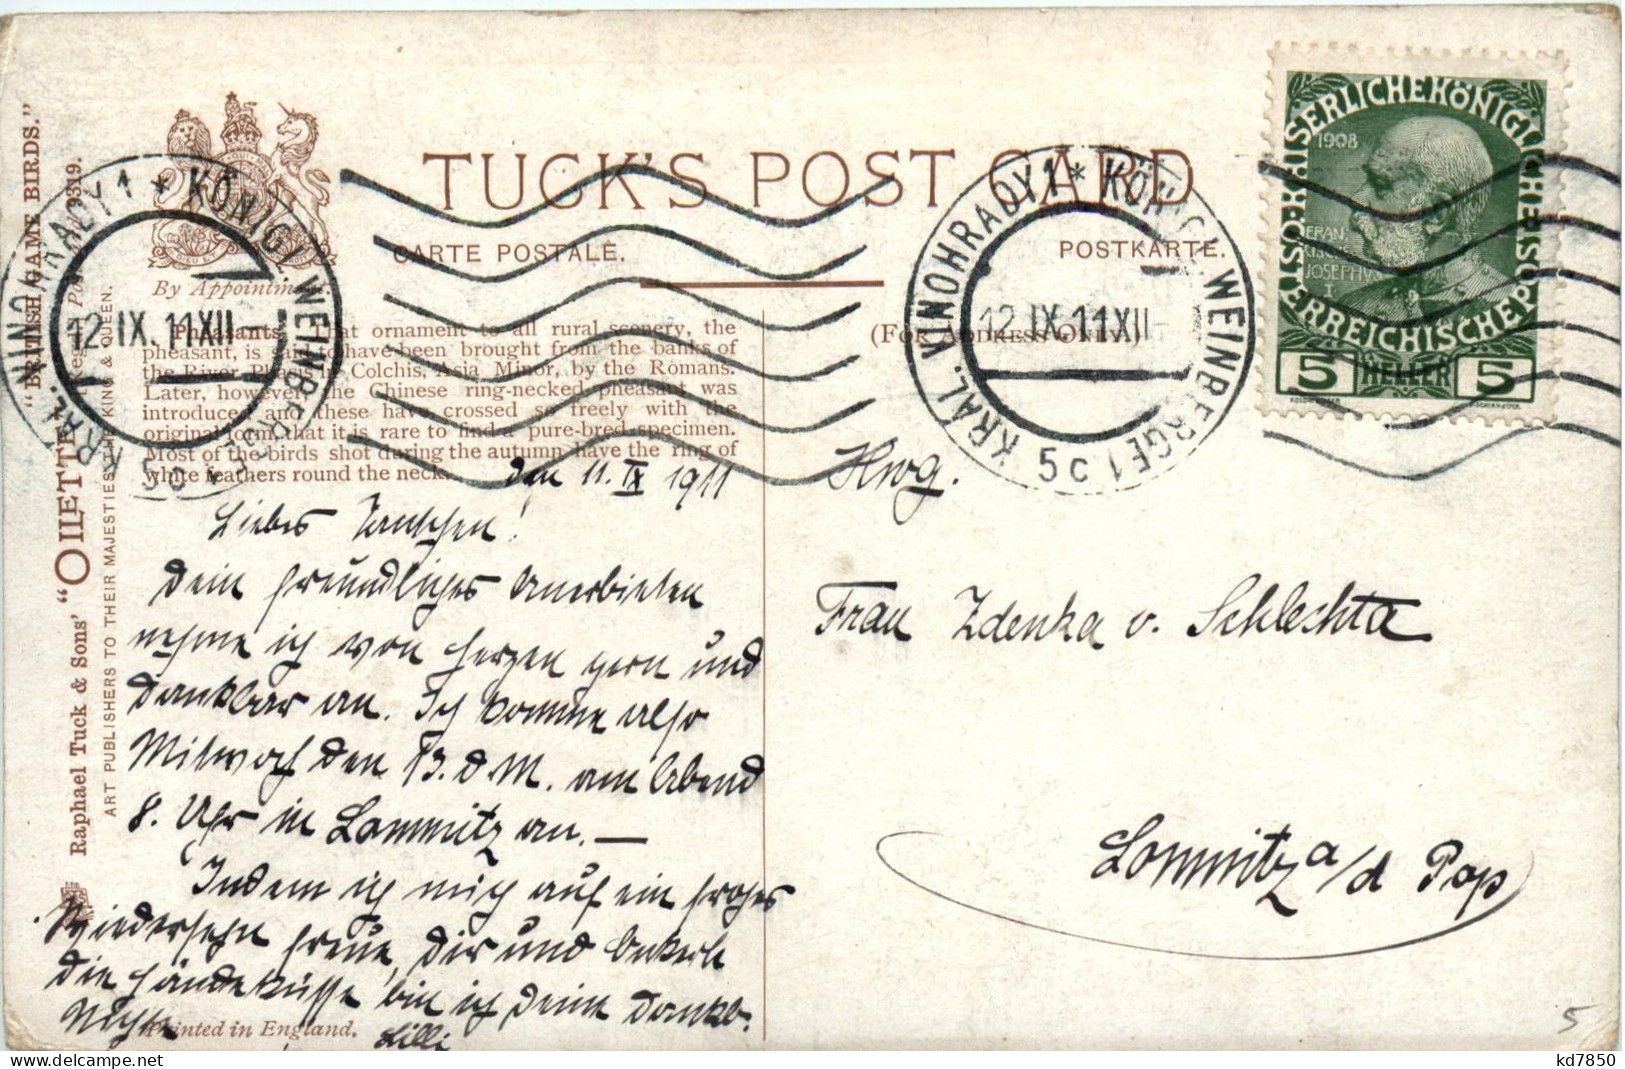 "BRITISH GAME BIRDS."
Regd in Postcard 9319.
Raphael Tuck & Sons' "OILETTE"
ART PUBLISHERS TO THEIR MAJESTIES THE KING & QUEEN.
By Appointment
TUCK'S POST CARD
CARTE POSTALE. POSTKARTE.
(FOR ADDRESS ONLY)
Pheasants. That ornament to all rural scenery, the
pheasant, is said to have been brought from the banks of
the River Phasis in Colchis, Asia Minor, by the Romans.
Later, however, the Chinese ring-necked pheasant was
introduced, and these have crossed so freely with the
original form, that it is rare to find a pure-bred specimen.
Most of the birds shot during the autumn have the ring of
white feathers round the neck.
KRÁL. VINOHRADY 1 * KÖNIGL. WEINBERGE 1
12.IX.11 XII-
5c
KRÁL. VINOHRADY 1 * KÖNIGL. WEINBERGE 1
12.IX.11 XII-
5c
KAISERLICHEKÖNIGLICHE
ÖSTERREICHISCHEPOST
1908
FRANCISCUS
JOSEPHUS
I
5 HELLER 5
den 11. IX 1911
Liebes Tantchen!
Dein freundliches Anerbieten
nehme ich von Herzen gern und
dankbar an. Ich komme also
Mittwoch den 13. d M. am Abend
8. Uhr in Lomnitz an. —
Indem ich mich auf ein frohes
Wiedersehn freue, Dir und Onkerle
die Hände küsse bin ich Deine dankb.
Nichte
Lilli
Printed in England.
Hwg.
Frau Zdenka v. Schlechta
Lomnitz a/d Pop
5
kd7850